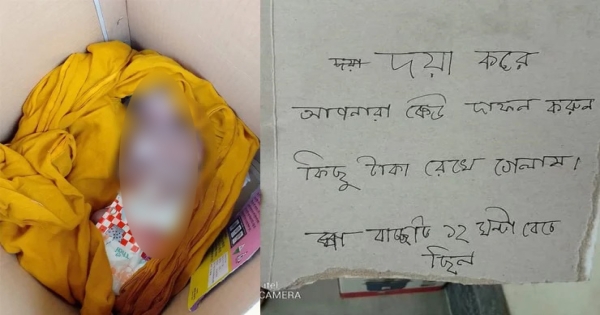 দয়া দয়া করে
আপনারা কেউ দাফন করুন
কিছু টাকা রেখে গেলাম।
বাচ্চাটি ১২ ঘন্টা বেচে
ছিল
itel
CAMERA